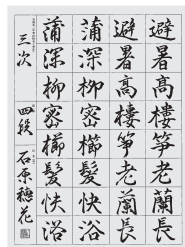 避暑高樓笋老蘭長
避暑高樓笋老蘭長
蒲深柳密櫛髮快浴
蒲深柳密櫛髮快浴
三次 四段 石原穂花